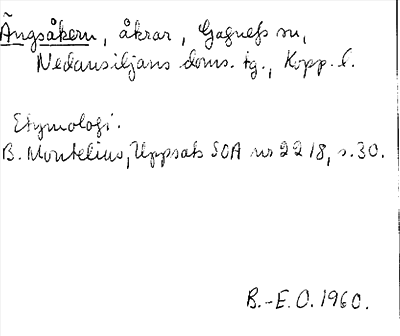 Ängsåkern, åkrar, Gagnefs sn,
Nedansiljans doms. tg., Kopp. l.
Etymologi.
B. Montelius, Uppsats SOA nr 2218, s. 30.
B.-E. O. 1960.